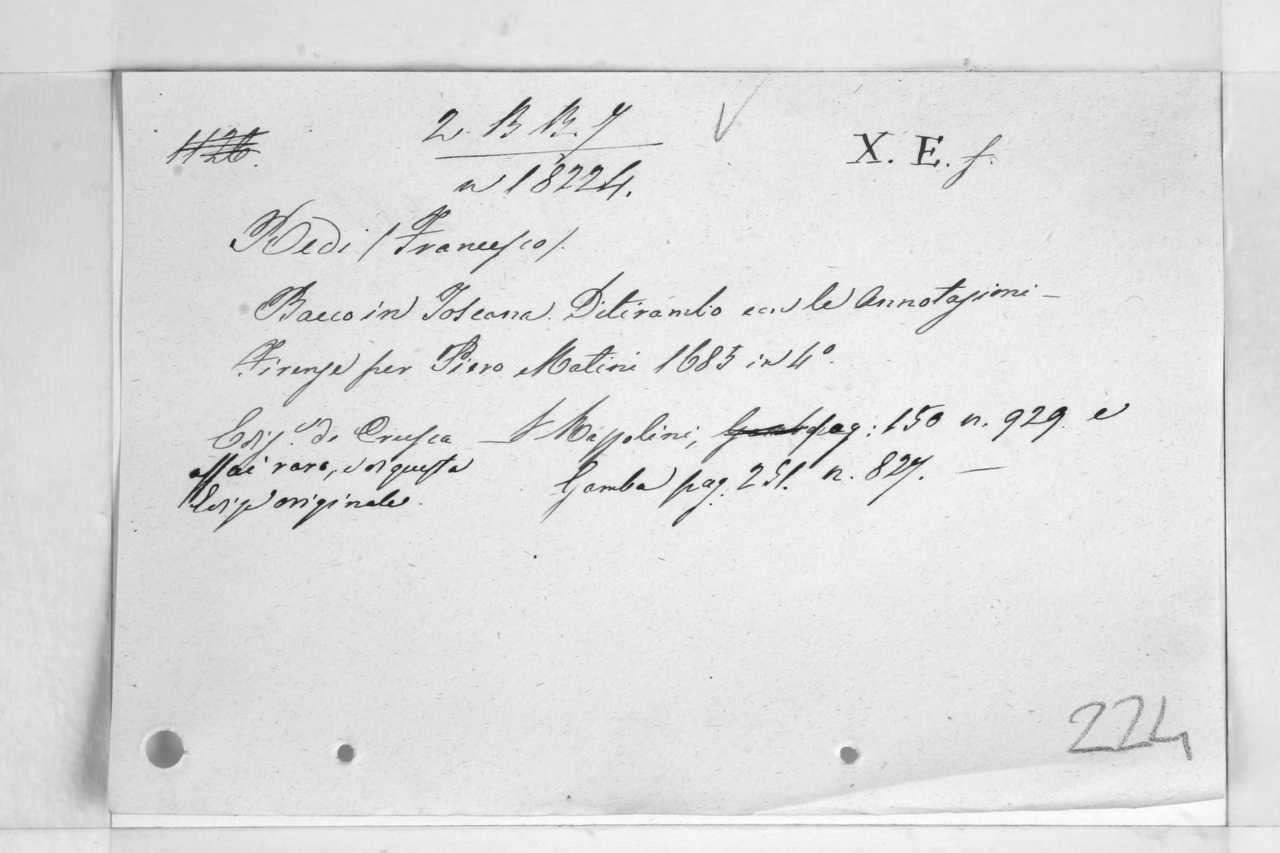 1126.
2. B B. 7
n 18224.
X. E. f.
Redi (Francesco).
Bacco in Toscana. Ditirambo con le Annotazioni -
Firenze per Piero Matini 1685 in 4°.
Ediz.e di Crusca — pag: 150 n. 929. e
assai rara, ed è questa Gamba pag. 251. n. 827. —
Ediz.e originale.
224